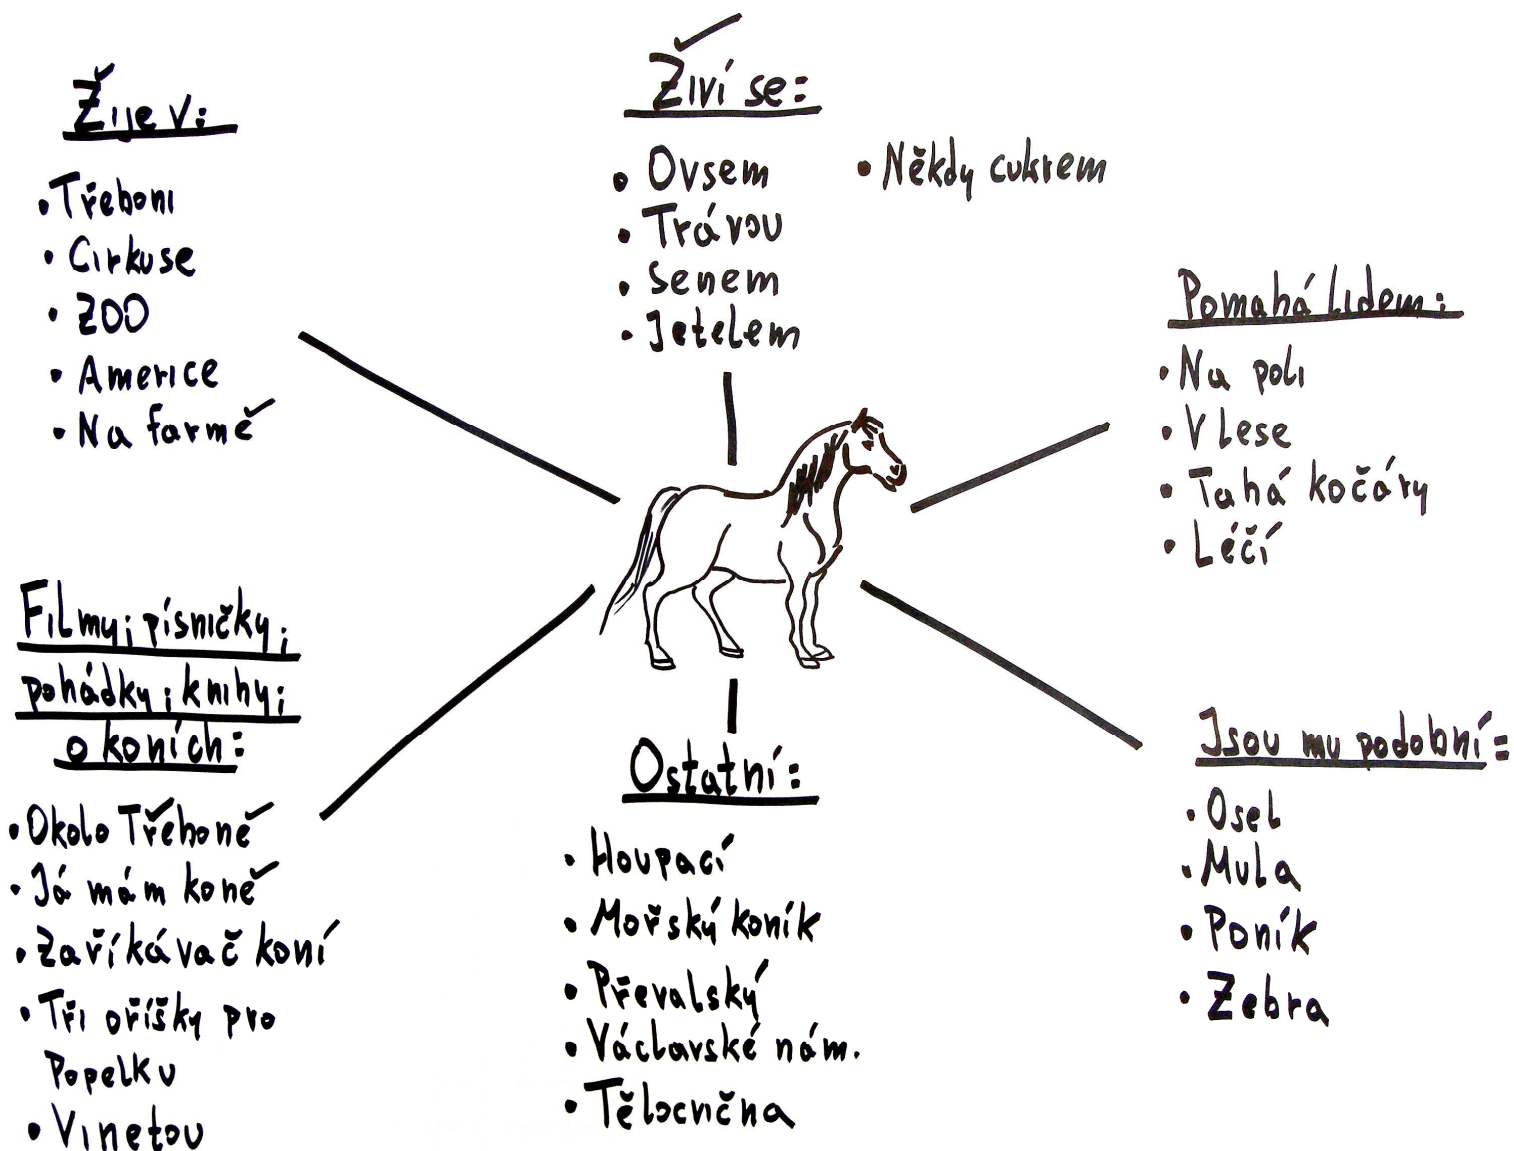 Žije v:
• Třeboni
• Cirkuse
• ZOO
• Americe
• Na farmě
Živí se:
• Ovsem
• Trávou
• Senem
• Jetelem
• Někdy cukrem
Pomahá lidem:
• Na poli
• V lese
• Tahá kočáry
• Léčí
Filmy; písničky;
pohádky; knihy;
o koních:
• Okolo Třeboně
• Já mám koně
• Zaříkávač koní
• Tři oříšky pro
Popelku
• Vinetou
Ostatní:
• Houpací
• Mořský koník
• Převalský
• Václavské nám.
• Tělocvična
Jsou mu podobní:
• Osel
• Mula
• Poník
• Zebra